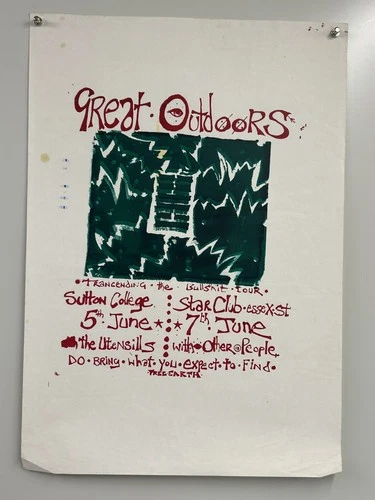 Great · Outdoors
· Trancending · the · Bullshit · tour ·
Sutton College. Star Club · essex · st
5th · June ★ ★ 7th June
the Utensills with Other @ People
Do · Bring · what · you · expect · to · Find ·
Free Earth